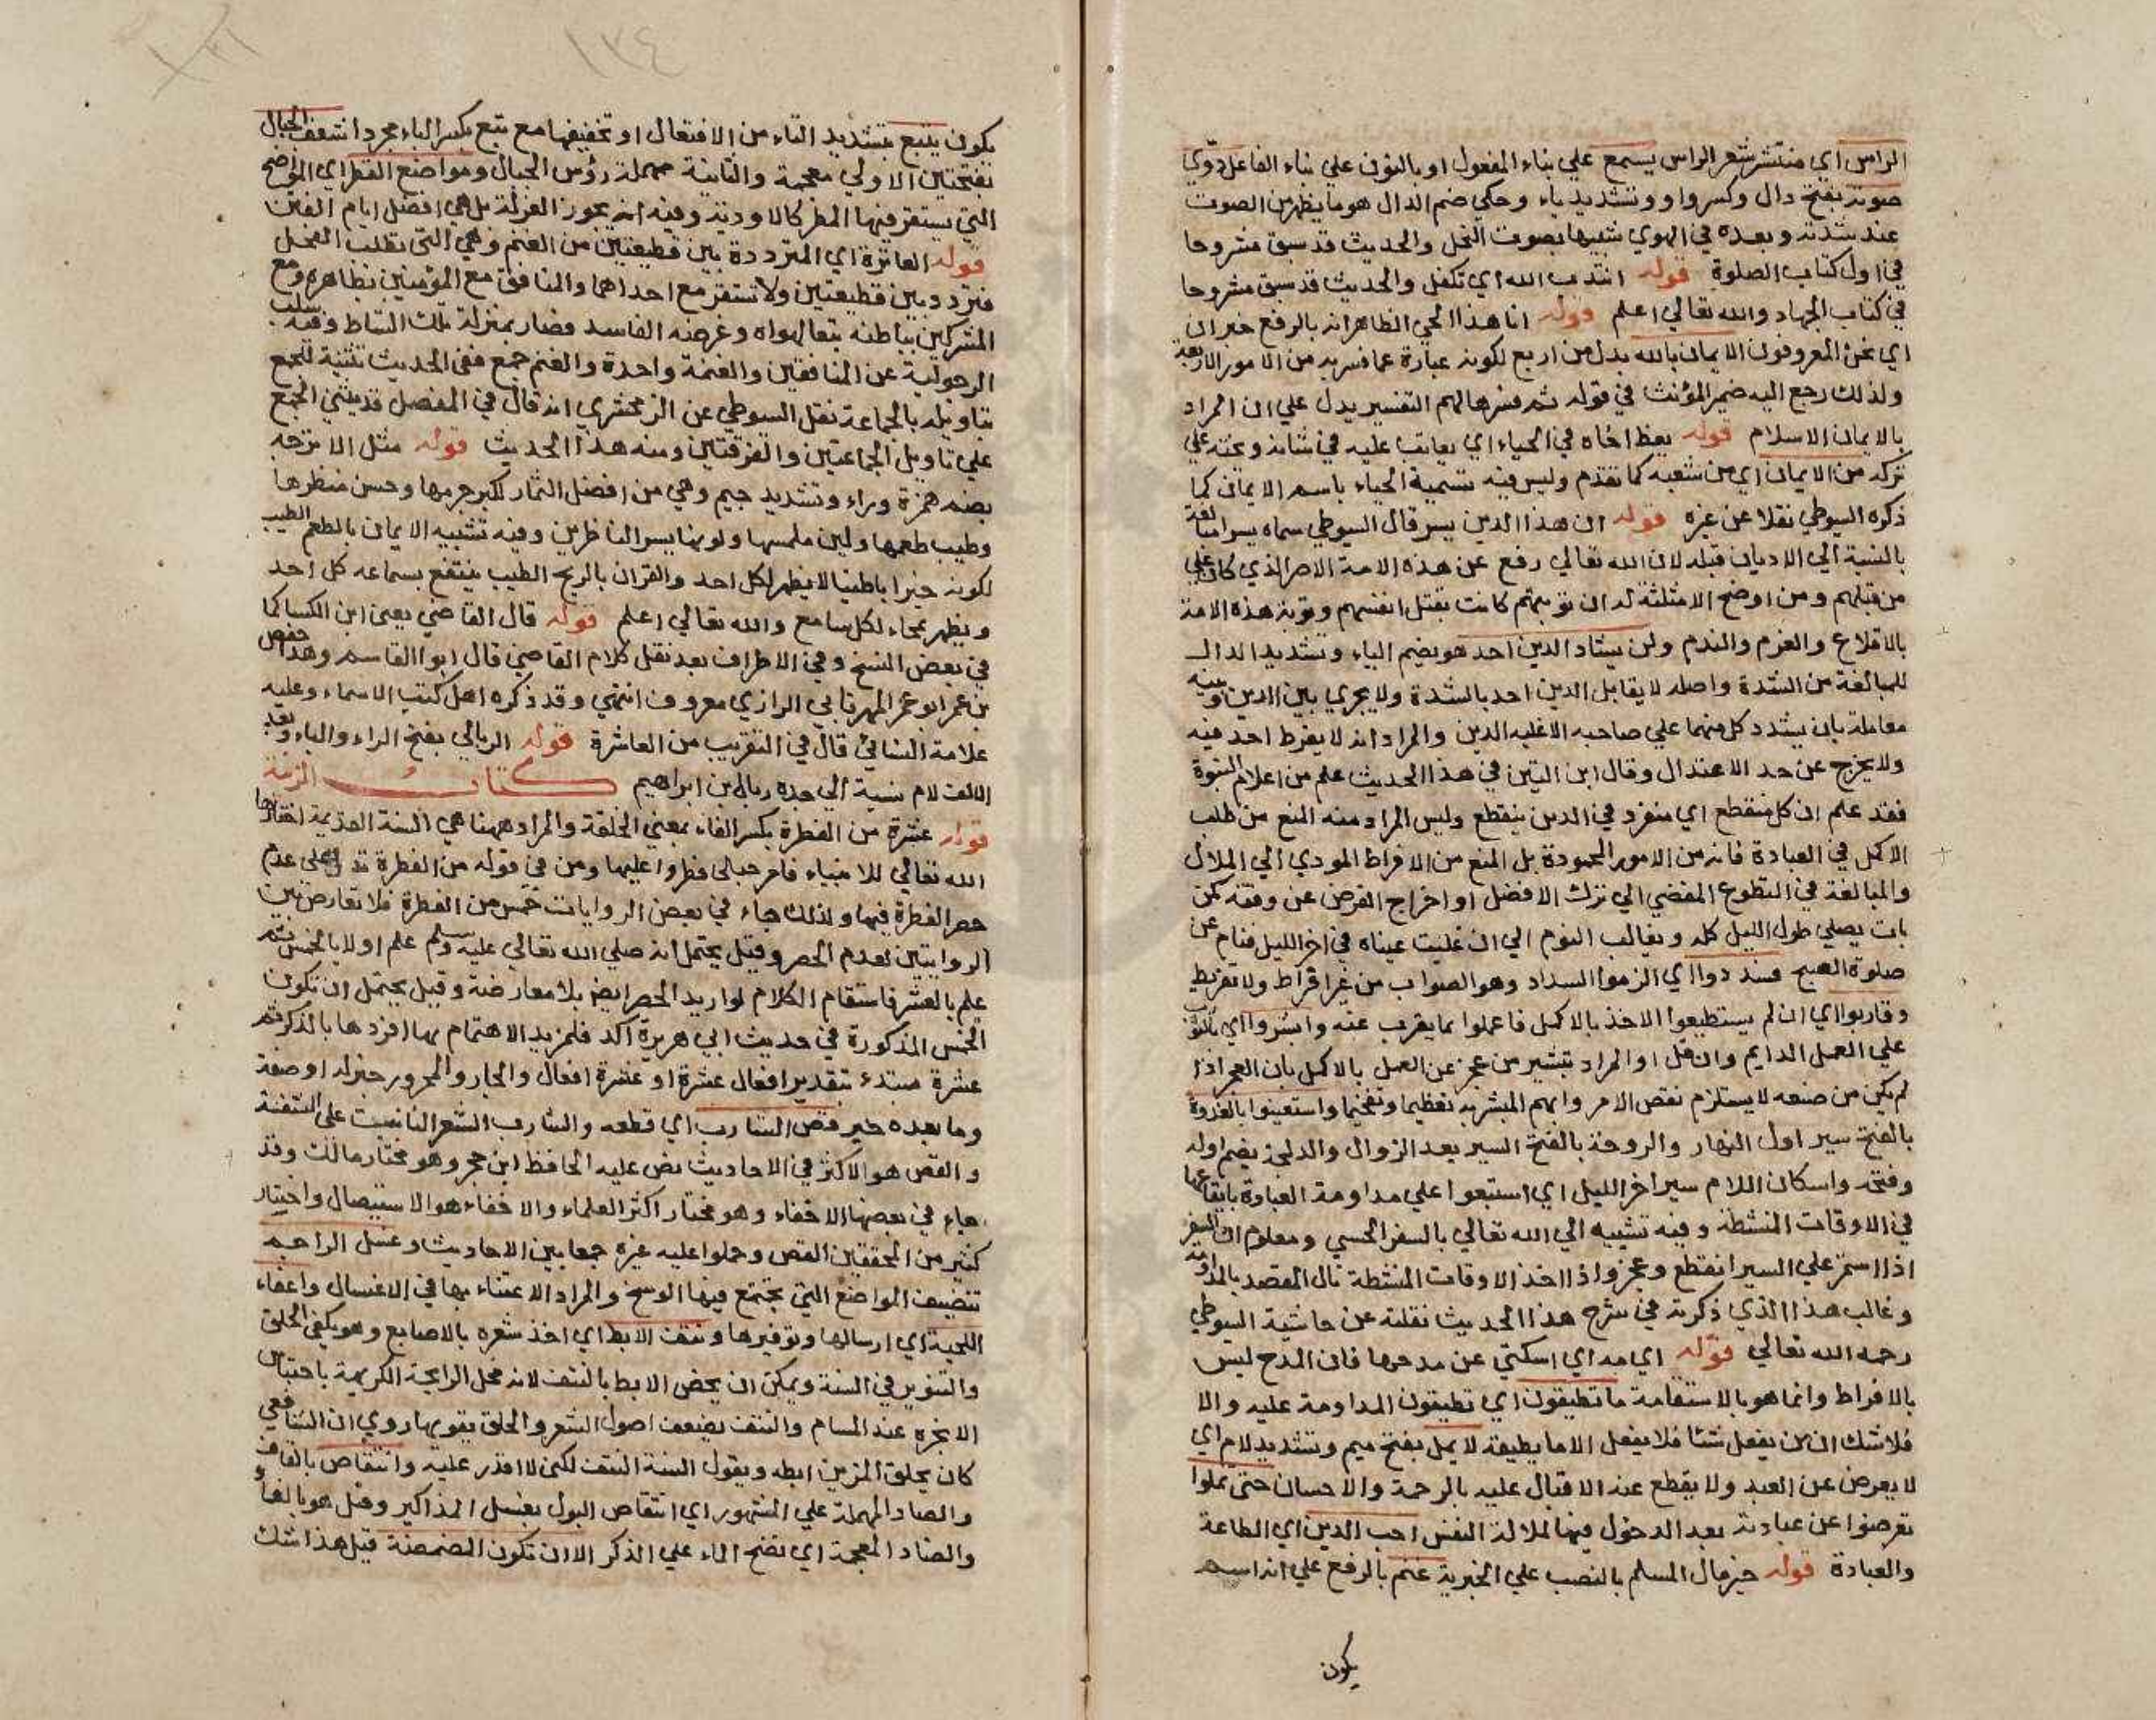 الراس اي منتشر شعر الراس يسمع علي بناء المفعول او بالنون علي بناء الفاعل دوي
صوته بفتح دال وكسر واو وتشديد ياء وحكي ضم الدال هو ما يظهر من الصوت
عند شدته وبعده في الهوي شبيها بصوت النحل والحديث قد سبق مشروحا
في اول كتاب الصلوة قوله انتدب الله اي تكفل والحديث قد سبق مشروحا
في كتاب الجهاد والله تعالي اعلم قوله انا هذا الحي الظاهر انه بالرفع خبر ان
اي نحن المعروفون الايمان بالله بدل من اربع لكونه عبارة عما فسر به من الامور الاربعة
ولذلك رجع اليه ضمير المؤنث في قوله ثم فسرها لهم التفسير يدل علي ان المراد
بالايمان الاسلام قوله يعظ اخاه في الحياء اي يعاتب عليه في شانه ويحثه علي
تركه من الايمان اي من شعبه كما تقدم وليس فيه تسمية الحياء باسم الايمان كما
ذكره السيوطي نقلا عن غيره قوله ان هذا الدين يسر قال السيوطي سماه يسرا مبالغة
بالنسبة الي الاديان قبله لان الله تعالي رفع عن هذه الامة الاصر الذي كان علي
من قبلهم ومن اوضح الامثلة له ان توبتهم كانت بقتل انفسهم وتوبة هذه الامة
بالاقلاع والعزم والندم ولن يشاد الدين احد هو بضم الياء وتشديد الدال
للمبالغة من الشدة واصله لا يقابل الدين احد بالشدة ولا يجري بين الدين وبينه
معاملة بان يشدد كل منهما علي صاحبه الا غلبه الدين والمراد انه لا يفرط احد فيه
ولا يخرج عن حد الاعتدال وقال ابن التين في هذا الحديث علم من اعلام النبوة
فقد علم ان كل منقطع اي متفرد في الدين ينقطع وليس المراد منه المنع من طلب
الاكمل في العبادة فانه من الامور المحمودة بل المنع من الافراط المودي الي الملال
والمبالغة في التطوع المفضي الي ترك الافضل او اخراج الفرض عن وقته كمن
بات يصلي طول الليل كله ويغالب النوم الي ان غلبت عيناه في اخر الليل فنام عن
صلوة الصبح فسددوا اي الزموا السداد وهو الصواب من غير افراط ولا تفريط
وقاربوا اي ان لم يستطيعوا الاخذ بالاكمل فاعملوا بما يقرب عنه وابشروا اي بالثواب
علي العمل الدايم وان قل او المراد تبشير من عجز عن العمل بالاكمل بان العجز اذا
لم يكن من صنعه لا يستلزم نقص الاجر وابهم المبشر به تعظيما وتفخيما واستعينوا بالغدوة
بالفتح سير اول النهار والروحة بالفتح السير بعد الزوال والدلجة بضم اوله
وفتحه واسكان اللام سير اخر الليل اي استعينوا علي مداومة العبادة بايقاعها
في الاوقات المنشطة وفيه تشبيه الي الله تعالي بالسفر الحسي ومعلوم ان المسافر
اذا استمر علي السير انقطع وعجز واذا اخذ الاوقات المنشطة نال المقصد بالمداومة
وغالب هذا الذي ذكرته في شرح هذا الحديث نقلته عن حاشية السيوطي
رحمه الله تعالي قوله اي مه اي اسكتي عن مدحها فان المدح ليس
بالافراط وانما هو بالاستقامة ما تطيقون اي تطيقون المداومة عليه والا
فلا شك ان من يفعل شئا فلا يفعل الا ما يطيقه لا يمل بفتح ميم وتشديد لام اي
لا يعرض عن العبد ولا يقطع عنه الاقبال عليه بالرحمة والاحسان حتي تملوا
تعرضوا عن عبادته بعد الدخول فيها لملالة النفس احب الدين اي الطاعة
والعبادة قوله خير مال المسلم بالنصب علي الخبرية غنم بالرفع علي انه اسم
يكون
١٣٤
يكون يتبع بتشديد التاء من الافتعال او تخفيفها مع تبع بكسر الباء مجردا شعف الجبال
بفتحتين الاولي معجمة والثانية مهملة رؤس الجبال ومواضع القطر اي المواضع
التي يستقر فيها المطر كالاودية وفيه انه يجوز العزلة بل هي افضل ايام الفتن
قوله العائرة اي المترددة بين قطيعتين من الغنم وهي التي تطلب الفحل
فتردد بين قطيعتين ولا تستقر مع احداهما والمنافق مع المؤمنين بظاهره ومع
المشركين بباطنه تبعا لهواه وغرضه الفاسد فصار بمنزلة تلك الشاط وفيه سلب
الرجولية عن المنافقين والغنمة واحدة والغنم جمع ففي الحديث تثنية للجمع
بتاويله بالجماعة نقل السيوطي عن الزمخشري انه قال في المفصل قد يثني الجمع
علي تاويل الجماعتين والفرقتين ومنه هذا الحديث قوله مثل الاترجة
بضم همزة وراء وتشديد جيم وهي من افضل الثمار لكبر جرمها وحسن منظرها
وطيب طعمها ولين ملمسها ولونها يسر الناظرين وفيه تشبيه الايمان بالطعم الطيب
لكونه خيرا باطنيا لا يظهر لكل احد والقران بالريح الطيب ينتفع بسماعه كل احد
ويظهر بمجاء لكل سامع والله تعالي اعلم قوله قال القاضي يعني ابن الكسا كما
في بعض النسخ وفي الاطراف بعد نقل كلام القاضي قال ابو القاسم وهذا حفص
بن عمر ابو عمر المهرقاني الرازي معروف انتهي وقد ذكره اهل كتب الاسماء وعليه
علامة النسائي قال في التقريب من العاشرة قوله الربالي بفتح الراء والباء وبعد
الالف لام نسبة الي جده ربال بن ابراهيم كتاب الزينة
قوله عشرة من الفطرة بكسر الفاء بمعني الخلقة والمراد ههنا هي السنة القديمة اختارها
الله تعالي للانبياء فامر جبالي فطروا عليها ومن في قوله من الفطرة تدل علي عدم
حصر الفطرة فيها ولذلك جاء في بعض الروايات خمس من الفطرة فلا تعارض بين
الروايتين لعدم الحصر وقيل يحتمل انه صلي الله تعالي عليه وسلم علم اولا بالخمس ثم
علم بالعشر فاستقام الكلام لو اريد الحصر ايضا بلا معارضة وقيل يحتمل ان تكون
الخمس المذكورة في حديث ابي هريرة اكد فلمزيد الاهتمام بها افردها بالذكر ثم
عشرة مبتدء بتقدير افعال عشرة او عشرة افعال والجار والمجرور خبر له او صفة
وما بعده خبر قص الشارب اي قطعه والشارب الشعر النابت علي الشفة
والقص هو الاكثر في الاحاديث نص عليه الحافظ ابن حجر وهو مختار مالك وقد
جاء في بعضها الاحفاء وهو مختار اكثر العلماء والاحفاء هو الاستيصال واختار
كثير من المحققين القص وحملوا عليه غيره جمعا بين الاحاديث وغسل البراجم
تنضيف المواضع التي يجتمع فيها الوسخ والمراد الاعتناء بها في الاغتسال واعفاء
اللحية اي ارسالها وتوفيرها ونتف الابط اي اخذ شعره بالاصابع وهو يكفي الحلق
والتنوير في السنة ويمكن ان يخص الابط بالنتف لانه محل الرايحة الكريهة باحتباس
الابخره عند المسام والنتف يضعف اصول الشعر والحلق يقويها روي ان الشافعي
كان يحلق المزين ابطه ويقول السنة النتف لكن لا اقدر عليه وانتقاص بالقاف
والصاد المهملة علي المشهور اي انتقاص البول بغسل المذاكير وقيل هو بالفاء
والضاد المعجمة اي نضح الماء علي الذكر الا ان تكون المضمضة قيل هذا شك